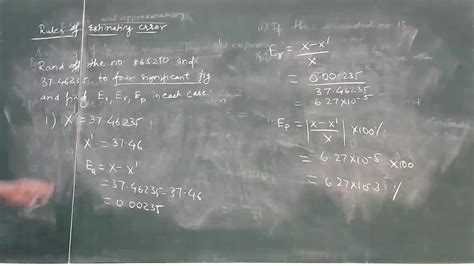 Rules of Estimating error
Round off the no 865250 and
37.46235 to four significant fig
and find Ea, Er, Ep in each case.
i) X = 37.46235
X' = 37.46
Ea = X - X'
= 37.46235 - 37.46
= 0.00235
ii) If the rounded no is
Er = x-x' / x
= 0.00235 / 37.46235
= 6.27x10-5
Ep = |x-x' / x| x100%
= 6.27x10-5 x100
= 6.27x10-3 %